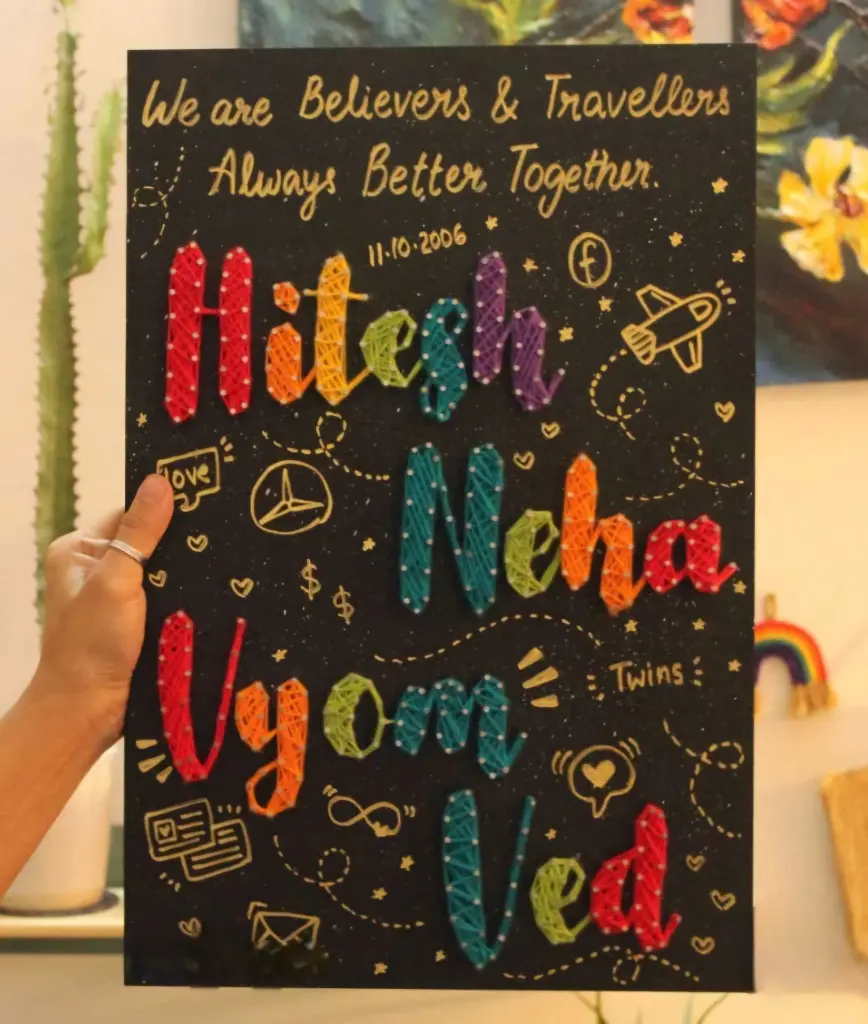 We are Believers & Travellers
Always Better Together.
11·10·2006
f
Hitesh
love
Neha
$
$
Twins
Vyom
Ved